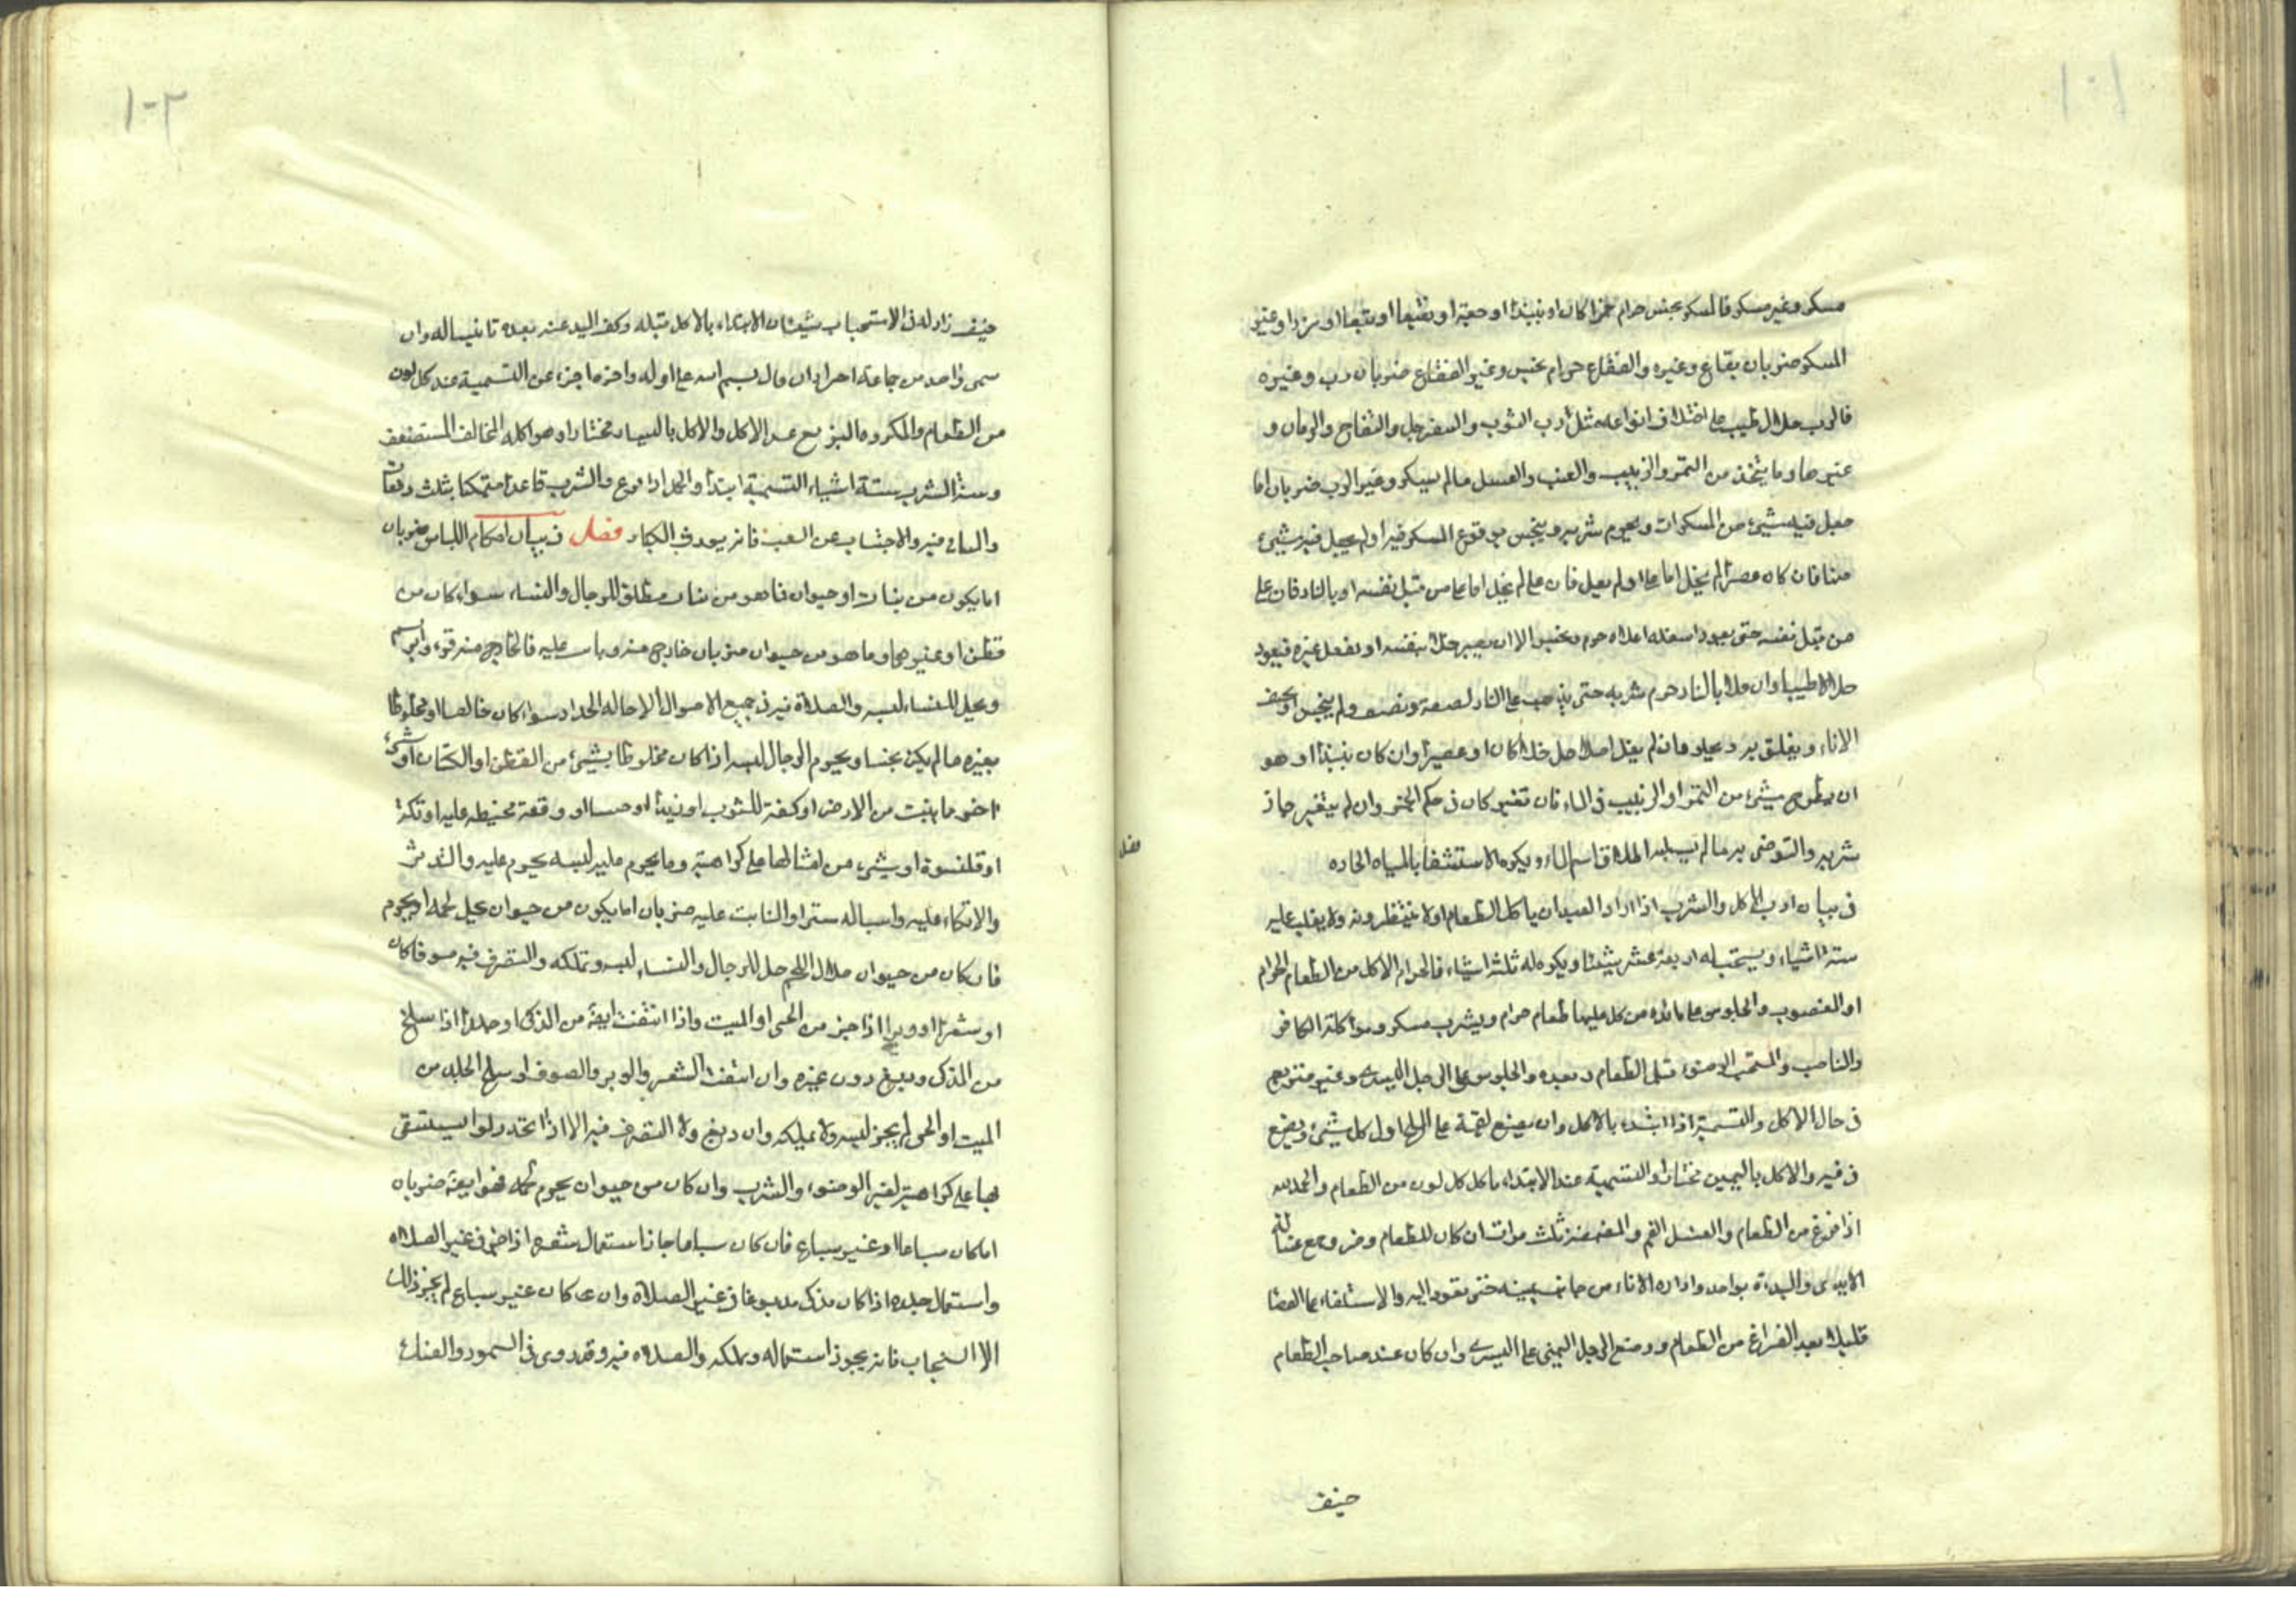 ١٠١
مسكر وغير مسكر فالمسكر نجس حرام خمرا كان او نبيذا او جعة او نقيعا او بتعا او مزرا او غير
المسكر ضربان فقاع وغيره والفقاع حرام نجس وغير الفقاع ضربان رب وغيره
فالرب حلال طيب على اختلاف انواعه مثل رب التوت والسفرجل والتفاح والرمان و
غيرها وما يتخذ من التمر والزبيب والعنب والعسل ما لم يسكر وغير الرب ضربان اما
جعل فيه شيئ من المسكرات ويحرم شربه وينجس بوقوع المسكر فيه او لم يجعل فيه شيئ
منها فان كان عصيرا لم يخل اما غلا او لم يغل فان غلى لم يخل اما غلا من قبل نفسه او بالنار فان غلى
من قبل نفسه حتى يعود اسفله اعلاه حرم ونجس الا ان يصير خلا بنفسه او بفعل غيره فيعود
حلالا طيبا وان غلا بالنار حرم شربه حتى يذهب على النار نصفه ونصف ولم ينجس او يخضب
الاناء ويعلق به ويحلو فان لم يغل اصلا حل خلا كان او عصيرا وان كان نبيذا او هو
ان يطرح شيئ من التمر او الزبيب في الماء فان تغير كان في حكم الخمر وان لم يتغير جاز
شربه والتوضى به ما لم يسلبه اطلاق اسم الماء ويكره الاستشفا بالمياه الحاره
فصل
في بيان ادب الاكل والشرب اذا اراد العبد ان ياكل الطعام اولا ينتظرونه ولا يغلب عليه
ستة اشياء ويستحب له اربعة عشر شيئا ويكره له ثلثة اشياء فالحرام الاكل من الطعام الحرام
او المغصوب والجلوس على مائدة من كل عليها طعام حرام ويشرب مسكر ومواكلة الكافر
والناصب والمستحب الوضوء قبل الطعام وبعده والجلوس على الرجل اليسرى وغير متربع
في حال الاكل والتسمية اذا ابتدء بالاكل وان يضع لقمة على الملح اول كل شيئ ويضع
في فيه والاكل باليمين مختارا والتسمية عند الابتداء باكل كل لون من الطعام والحمد لله
اذا فرغ من الطعام والغسل الفم والمضمضة ثلث مرات ان كان للطعام وضر وجمع غسالة
الايدى والبداة بواحد وادارة الاناء من جانب يمينه حتى تعود اليه والاستلقاء على القفا
قليلا بعد الفراغ من الطعام ووضع الرجل اليمنى على اليسرى وان كان عند صاحب الطعام
ضيف
١٠٢
ضيف زاد له في الاستحباب شيئان الابتداء بالاكل قبله وكف اليد عنه بعده تانيسا له وان
سمى واحد من جماعة اجزا وان قال بسم الله على اوله واخره اجزء عن التسمية عند كل لون
من الطعام والمكروه الاكل والاكل باليسار مختارا ومواكلة المخالف المستضعف
وسنة الشرب ستة اشياء التسمية ابتدأ والحمد اذا فرغ والشرب قاعدا متمكنا بثلث دفعات
والتانى فيه والاجتناب عن العب فانه يورث الكباد فصل في بيان احكام اللباس ضربان
اما يكون من نبات او حيوان فما هو من نبات مطلق للرجال والنساء سواء كان من
قطن او غيرها وما هو من حيوان ضربان خارج منه ونابت عليه فالخارج منه قز وابريسم
ويحل للنساء لبسه والصلاة فيه في جميع الاحوال الا حالة الحداد سواء كان خالصا او مخلوطا
بغيره ما لم يكن نجسا ويحرم للرجال لبسه الا اذا كان مخلوطا بشيئ من القطن او الكتان او شيئ
اخر ما ينبت من الارض او كفة للثوب او زيدا او حسا او وقعة مخيطه عليه او تكة
او قلنسوة او شيئ من امثالها على كراهية وما يحرم عليه لبسه يحرم عليه والتدثر
والاتكاء عليه واسباله سترا والنابت عليه ضربان اما يكون من حيوان يحل لحمه او يحرم
فان كان من حيوان حلال اللحم حل للرجال والنساء لبسه وتملكه والتصرف فيه صوفا كان
او شعرا او وبرا اذا جز من الحى او الميت واذا انتفت ايضا من الذكى او جلدا اذا سلخ
من المذكى ودبغ دون غيره وان انتفت الشعر والوبر والصوف او سلخ الجلد من
الميت او الحى لم يجز لبسه ولا تملكه وان دبغ ولا التصرف فيه الا اذا اتخذ دلوا يستقى
بها على كراهية لغير الوضوء والشرب وان كان من حيوان يحرم لحمه فهو ايضا ضربان
اما كان سباعا او غير سباع فان كان سباعا جاز استعمال شعره اذا ذكى في غير الصلاة
واستعمال جلده اذا كان مذكى مدبوغا في غير الصلاة وان كان غير سباع لم يجز ذلك
الا السنجاب فانه يجوز استعماله وتملكه والصلاة فيه وقد روى في السمور والفنك